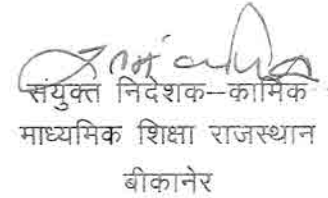 संयुक्त निदेशक–कार्मिक
माध्यमिक शिक्षा राजस्थान
बीकानेर